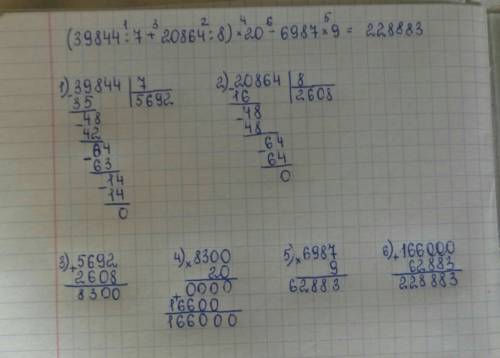 (39844 : 7 + 20864 : 8) × 20 - 6987 × 9 = 228883
1 3 2 4 6 5
1) 39844 | 7
- 35 | 5692
- 48
42
64
- 63
- 14
14
0
2) 20864 | 8
- 16 | 2608
- 48
48
- 64
64
0
3) + 5692
2608
8300
4) × 8300
20
0000
+
16600
166000
5) × 6987
9
62883
6) + 166000
62883
228883